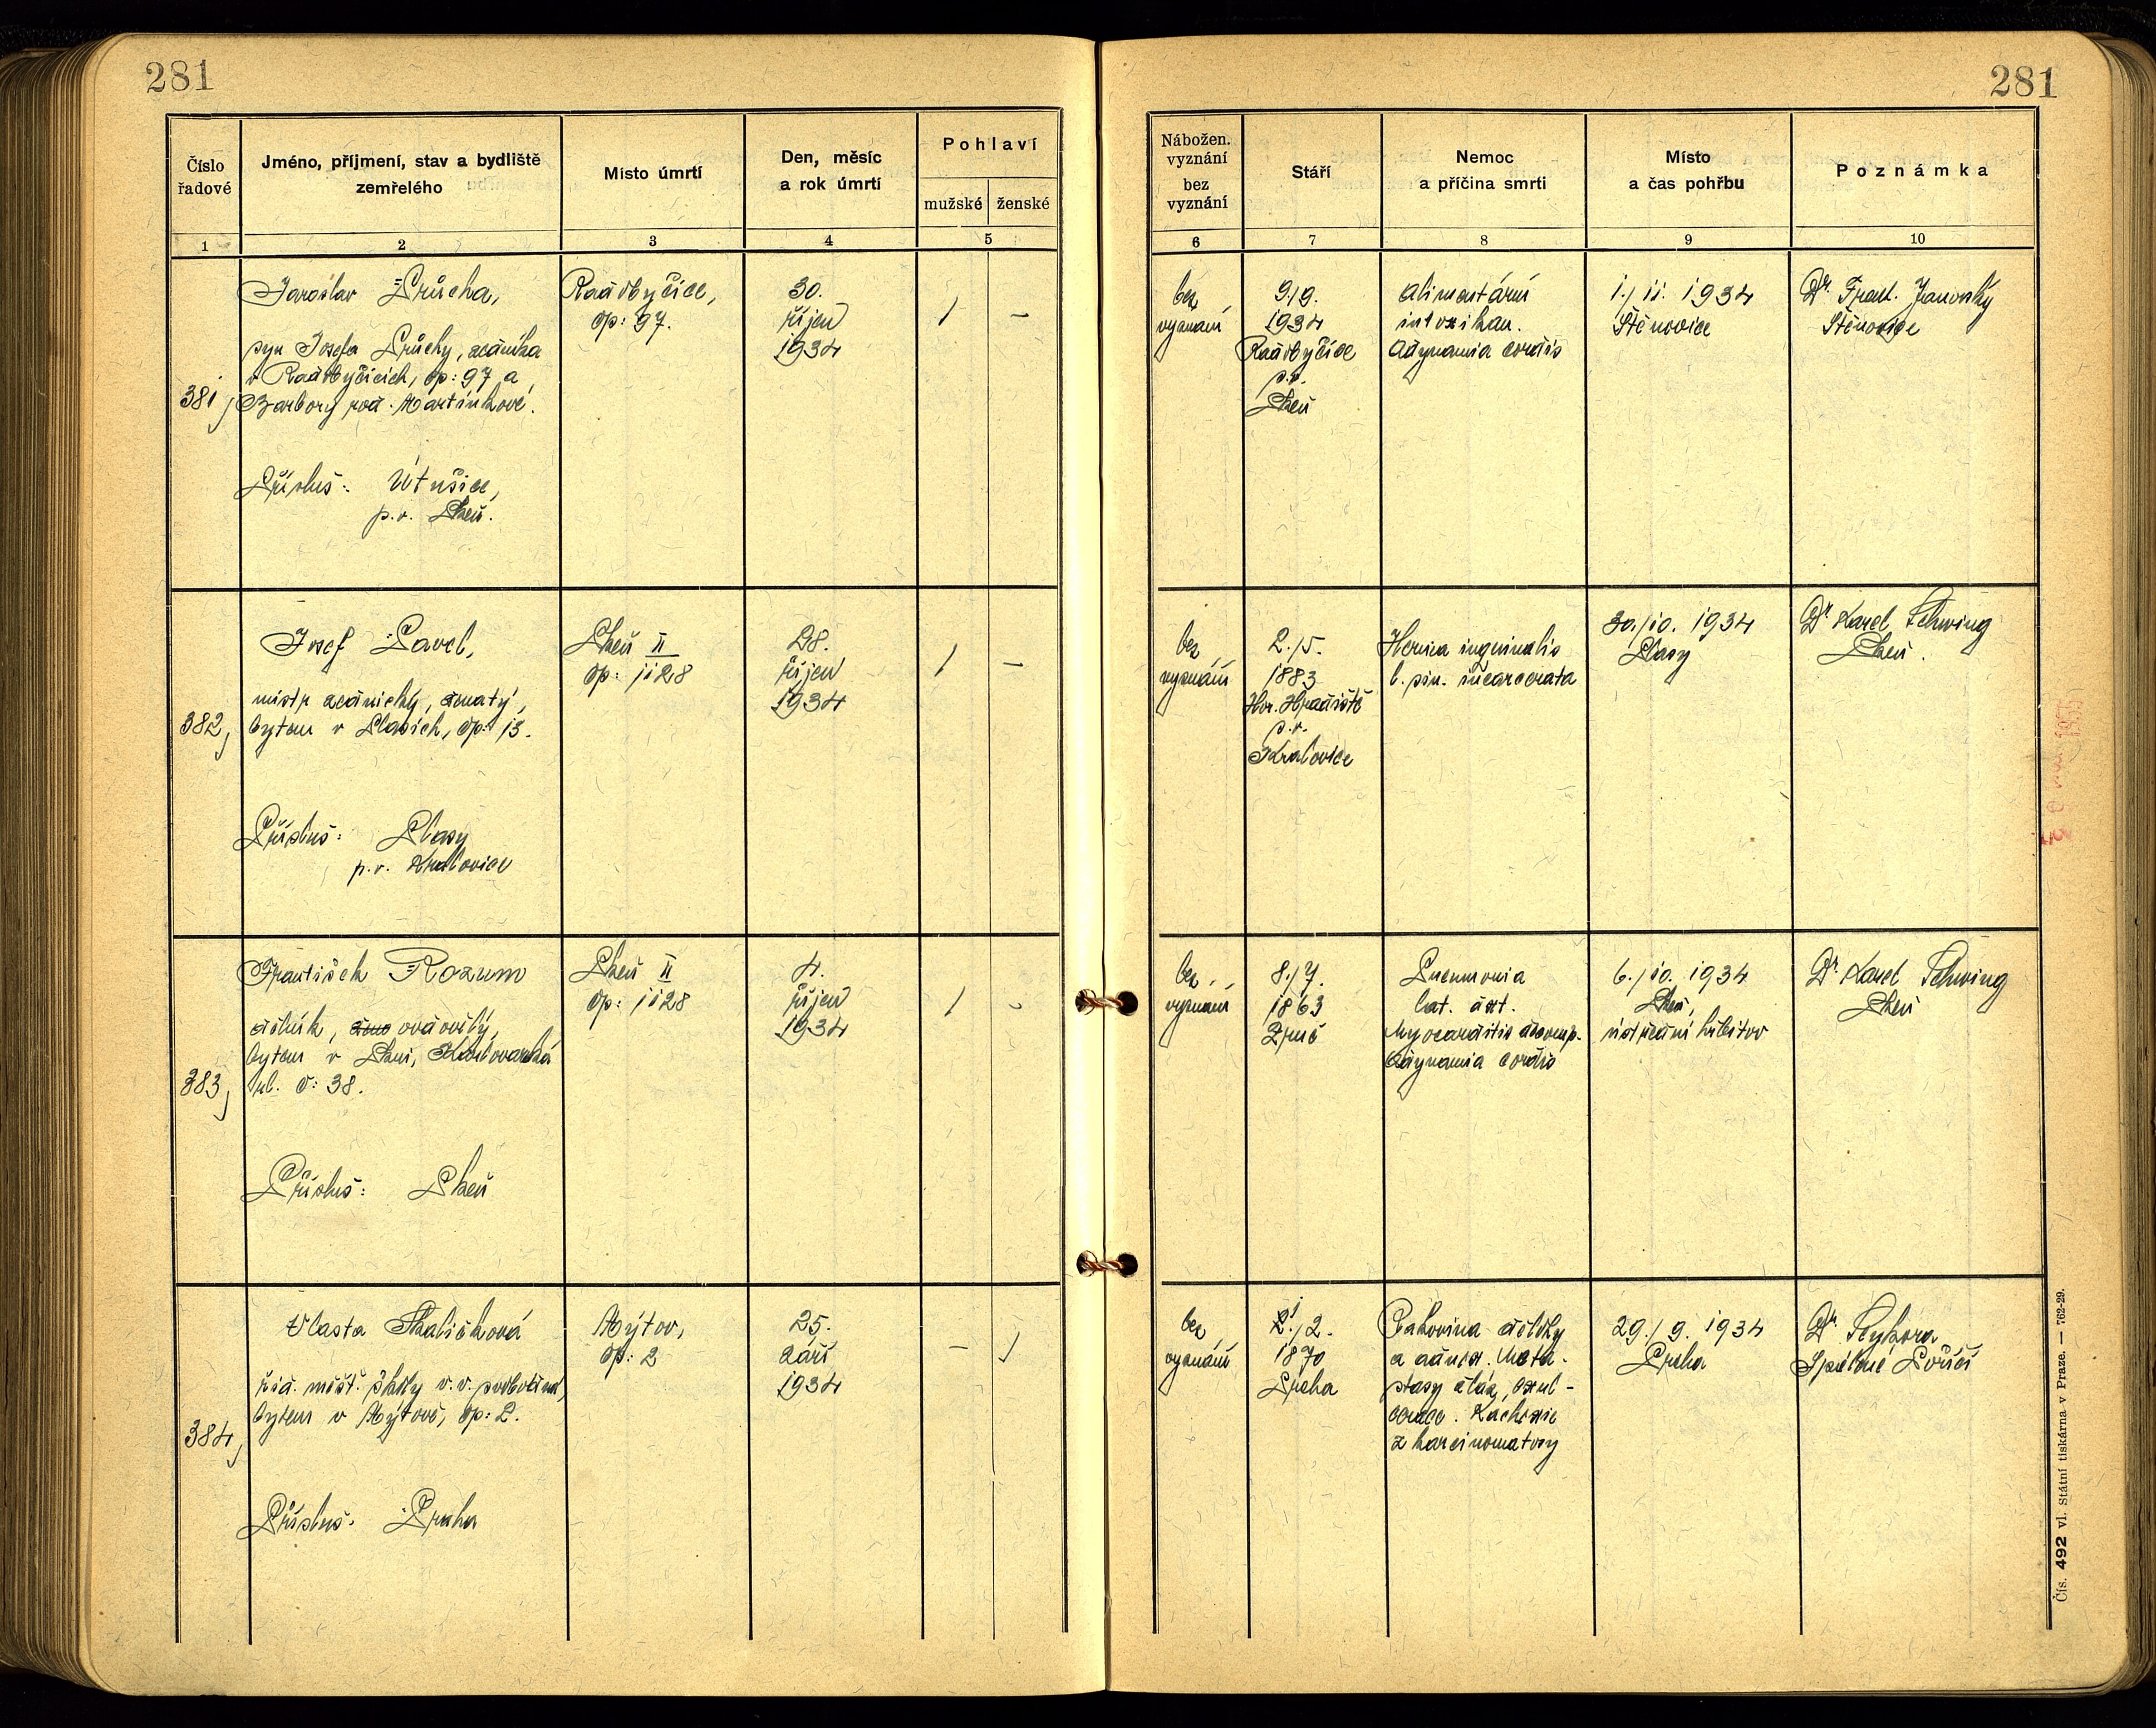 281
281
Číslo řadové
Jméno, příjmení, stav a bydliště zemřelého
Místo úmrtí
Den, měsíc a rok úmrtí
Pohlaví
mužské
ženské
Nábožen. vyznání
bez vyznání
Stáří
Nemoc a příčina smrti
Místo a čas pohřbu
Poznámka
1 2 3 4 5 6 7 8 9 10
381,
Jaroslav Průcha,
syn Josefa Průchy, zedníka
v Radobyčicích, čp: 97 a
Barbory roz. Martínkové.
Přísluš: Útušice,
p.o. Plzeň.
Radobyčice,
čp: 97.
30.
říjen
1934
/ –
bez
vyznání
9./9.
1934
Radobyčice
p.o.
Plzeň
alimentární
intoxikac.
Adynamia cordis
1./11. 1934
Štěnovice
Dr. Frant. Janovský
Štěnovice
382,
Josef Pavel,
mistr zednický, ženatý,
bytem v Plasích, čp: 13.
Přísluš: Plasy
p.o. Kralovice
Plzeň II
čp: 1128
28.
říjen
1934
/ –
bez
vyznání
2./5.
1883
Hor. Hradiště
p.o.
Kralovice
Hernia inguinalis
l. sin. incarcerata
30./10. 1934
Plasy
Dr Karel Schwing
Plzeň.
383,
František Rozum
dělník, ovdovělý,
bytem v Plzni, Karlovarská
ul. č: 38.
Přísluš: Plzeň
Plzeň II
čp: 1128
4.
říjen
1934
/ -
bez
vyznání
8./7.
1863
Zruč
Pneumonia
lat. dxt.
Myocarditis decomp.
Adynamia cordis
6./10. 1934
Plzeň,
ústřední hřbitov
Dr Karel Schwing
Plzeň
384,
Vlasta Skaličková
říd. měšť. školy v.v. svobodná,
bytem v Mýtově, čp: 2.
Přísluš: Praha
Mýtov,
čp: 2
25.
září
1934
– /
bez
vyznání
/2.
1870
Praha
Rakovina dělohy
a adnex. Meta-
stasy žláz, exul-
cerace. Kachexie
z karcinomatosy
29./9. 1934
Praha
Dr.
Spálené Poříčí
Čís. 492 vl. Státní tiskárna v Praze. — 762-29.